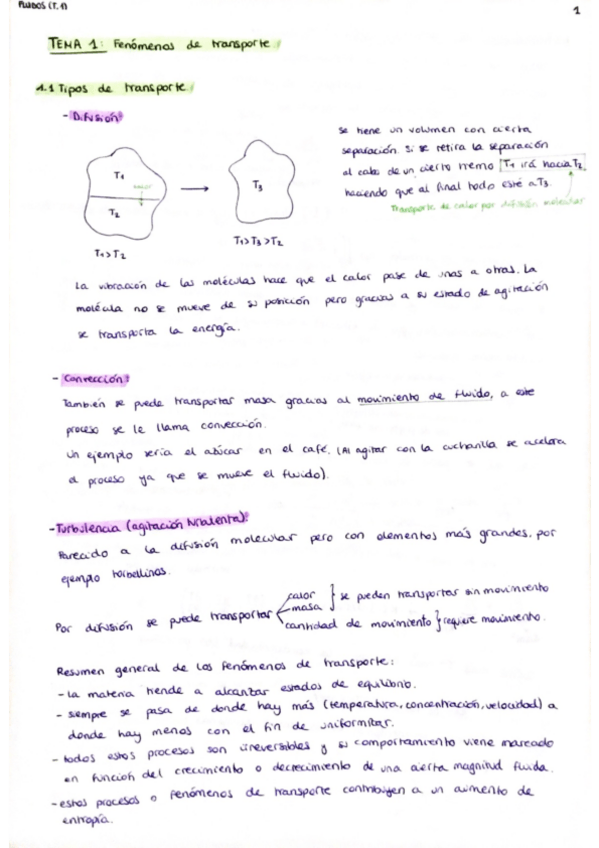 FLUIDOS (T.1)
1
TEMA 1: Fenómenos de transporte.
1.1 Tipos de transporte
- Difusión:
Se tiene un volumen con cierta
separación. Si se retira la separación
al cabo de un cierto tiempo T1 irá hacia T2
haciendo que al final todo esté a T3.
Transporte de calor por difusión molecular
T1
calor
T2
T3
T1>T2
T1>T3>T2
La vibración de las moléculas hace que el calor pase de unas a otras. La
molécula no se mueve de su posición pero gracias a su estado de agitación
se transporta la energía.
- Convección:
También se puede transportar masa gracias al movimiento de fluido, a este
proceso se le llama convección.
Un ejemplo sería el azúcar en el café. (Al agitar con la cucharilla se acelera
el proceso ya que se mueve el fluido).
- Turbulencia (agitación turbulenta):
Parecido a la difusión molecular pero con elementos más grandes, por
ejemplo torbellinos.
Por difusión se puede transportar
calor
masa
} se pueden transportar sin movimiento
cantidad de movimiento } requiere movimiento.
Resumen general de los fenómenos de transporte:
- la materia tiende a alcanzar estados de equilibrio.
- siempre se pasa de donde hay más (temperatura, concentración, velocidad) a
donde hay menos con el fin de uniformizar.
- todos estos procesos son irreversibles y su comportamiento viene marcado
en función del crecimiento o decrecimiento de una cierta magnitud fluida.
- estos procesos o fenómenos de transporte contribuyen a un aumento de
entropía.